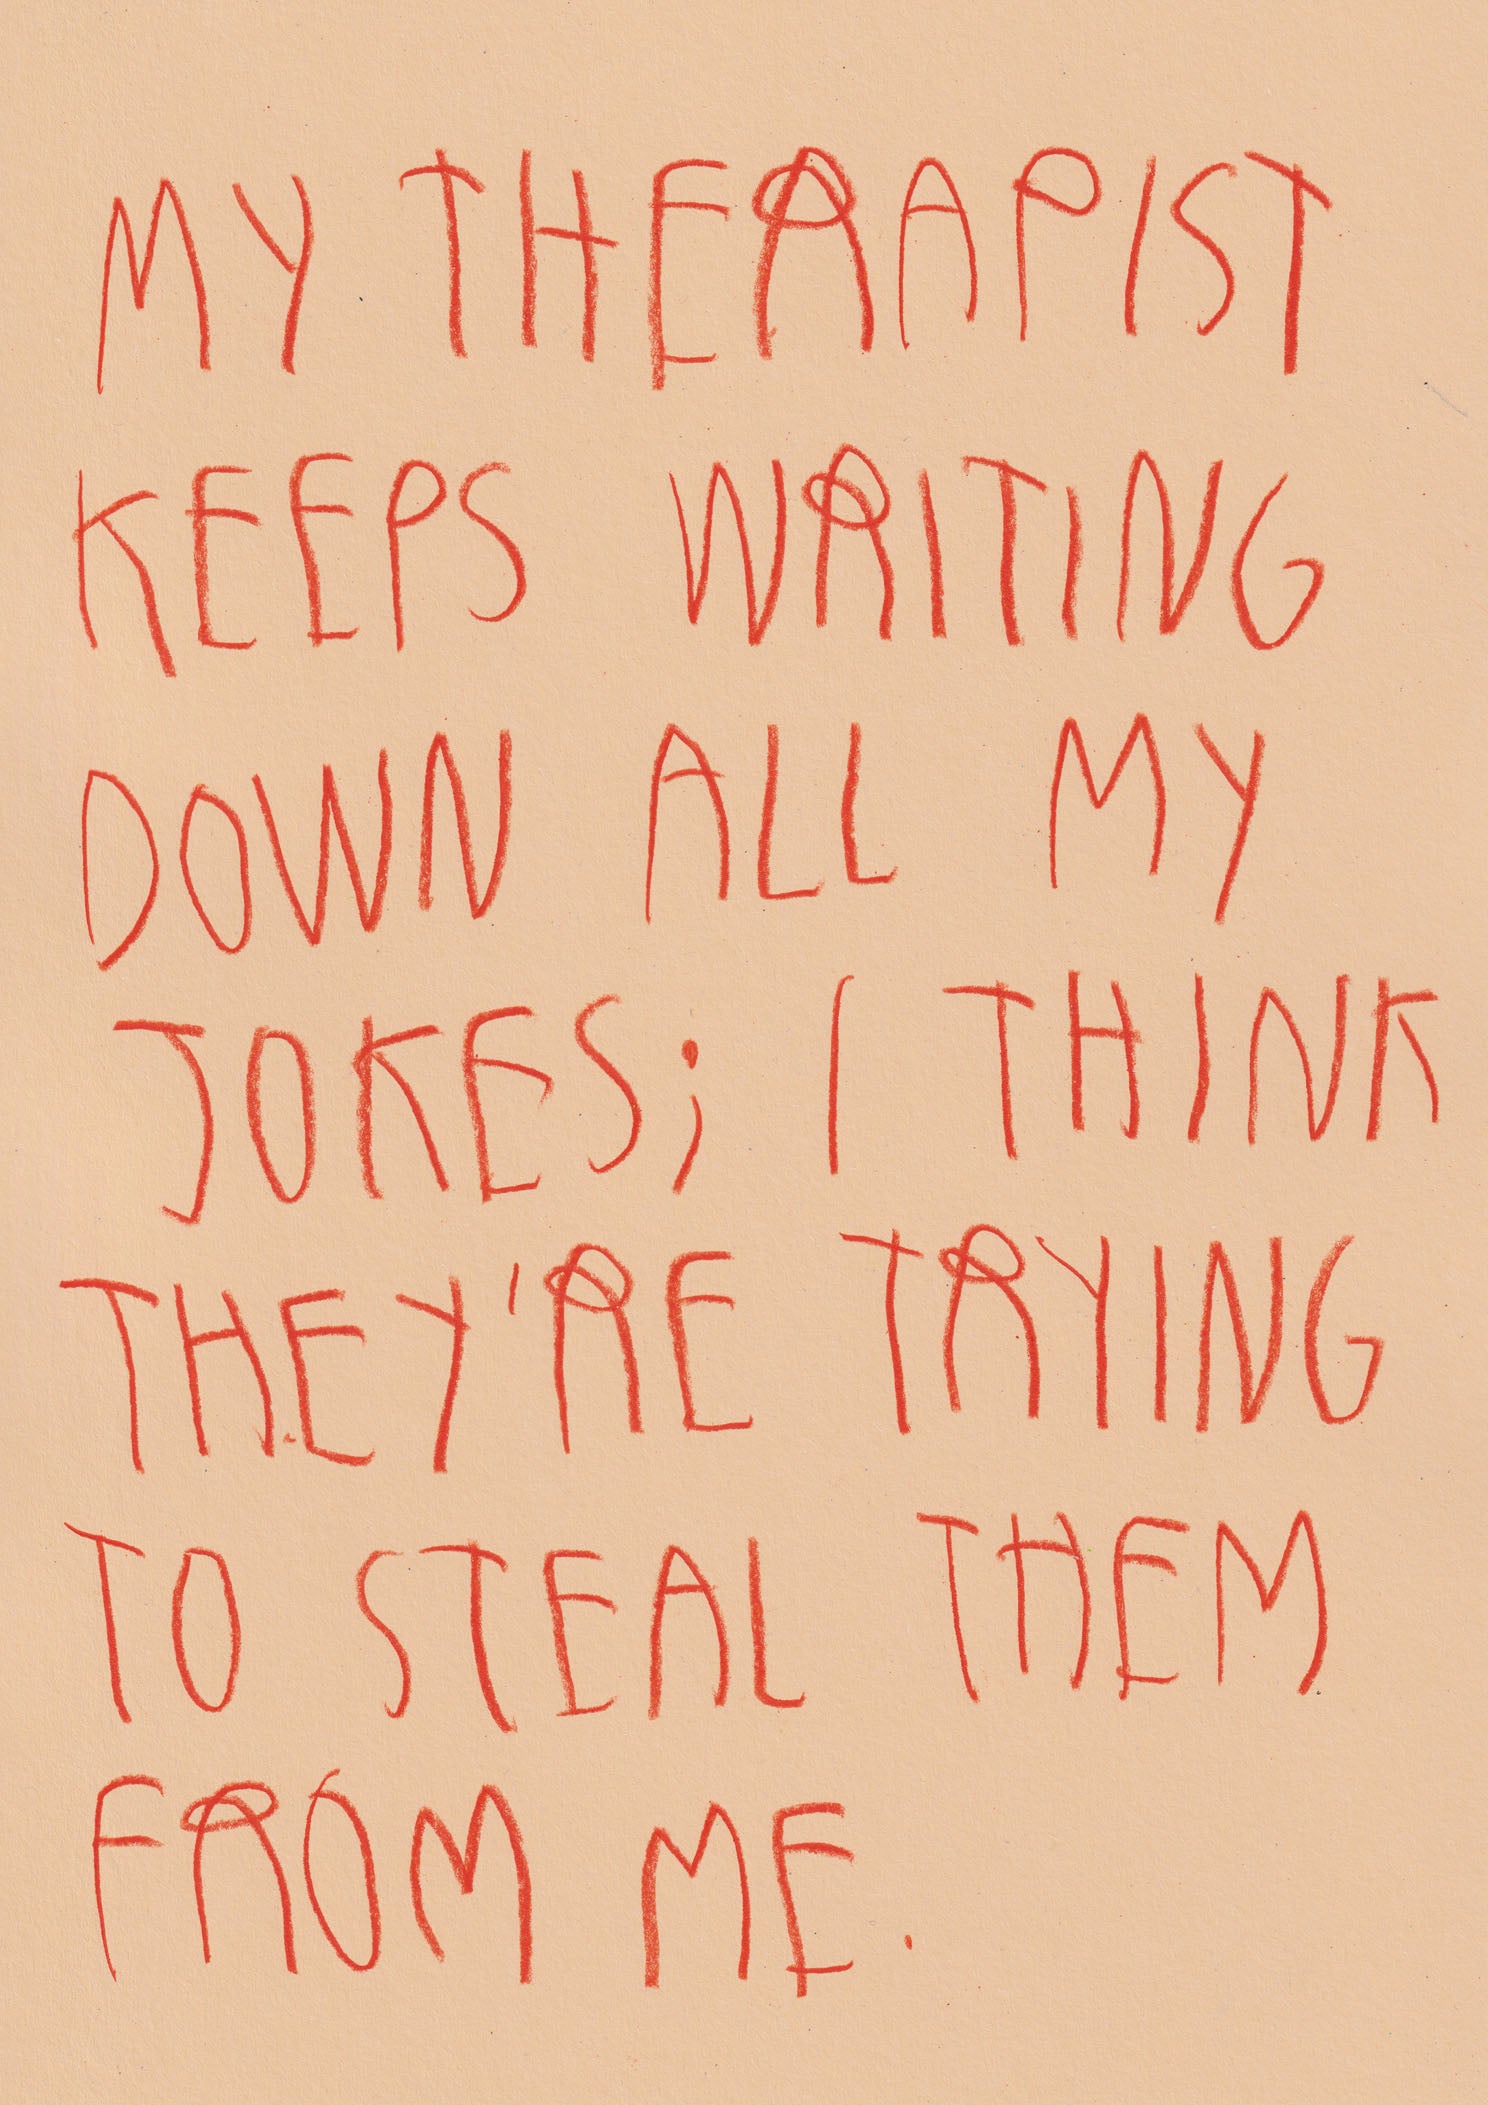 MY THERAPIST
KEEPS WRITING
DOWN ALL MY
JOKES; I THINK
THEY'RE TRYING
TO STEAL THEM
FROM ME.